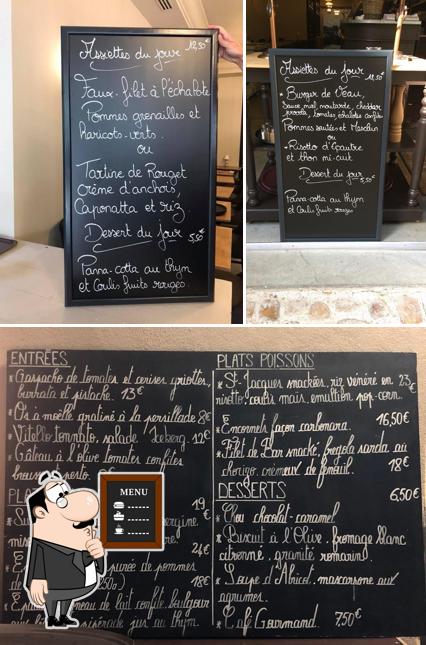 Assiettes du jour 12,50€
Faux-filet à l'échalote
Pommes grenailles et
haricots-verts.
ou
Tartine de Rouget
crème d'anchois,
Caponatta et riz
Dessert du jour 5,50€
Panna-cotta au thym
et Coulis fruits rouges.
Assiettes du jour 12,50€
Burger de l'eau,
sauce miel, moutarde, cheddar
tomates, échalotes confites
Pommes sautées et Mesclun
ou
Risotto d'Epautre
et thon mi-cuit
Dessert du jour 5,50€
Panna cotta au thym
et Coulis fruits rouges
ENTRÉES
* Gaspacho de tomates et cerises griottes,
burrata et pistache. 13€
* Os à moëlle gratiné à la persillade 8€
* Vitello tonnato, salade Iceberg. 12€
* Gâteau à l'olive tomates confites
pesto.
19
€
24€
purée de pommes
18€
de lait confite, boulgour
jus au thym
MENU
PLATS POISSONS
* St-Jacques snackées, riz vénéré en 23
risotto, coulis maïs, emulsion pop-corn. €
* Encornets façon carbonara. 16,50€
* Filet de Bar snacké, fregola sarda au
chorizo, crémeux de fenouil. 18€
DESSERTS 6,50€
* Chou chocolat-caramel
* Biscuit à l'Olive, fromage blanc
citronné, granité romarin.
* Soupe d'Abricot, mascarpone aux
agrumes.
* Café Gourmand 7,50€